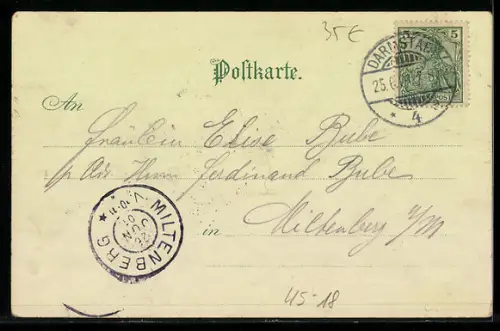 35€
5
DARMSTADT
25.6.
* 4
Postkarte.
An
Fräulein Elise Bube
p. Adr. Herrn Ferdinand Bube
in Miltenberg a/M
MILTENBERG
26
JUN
01
45-18